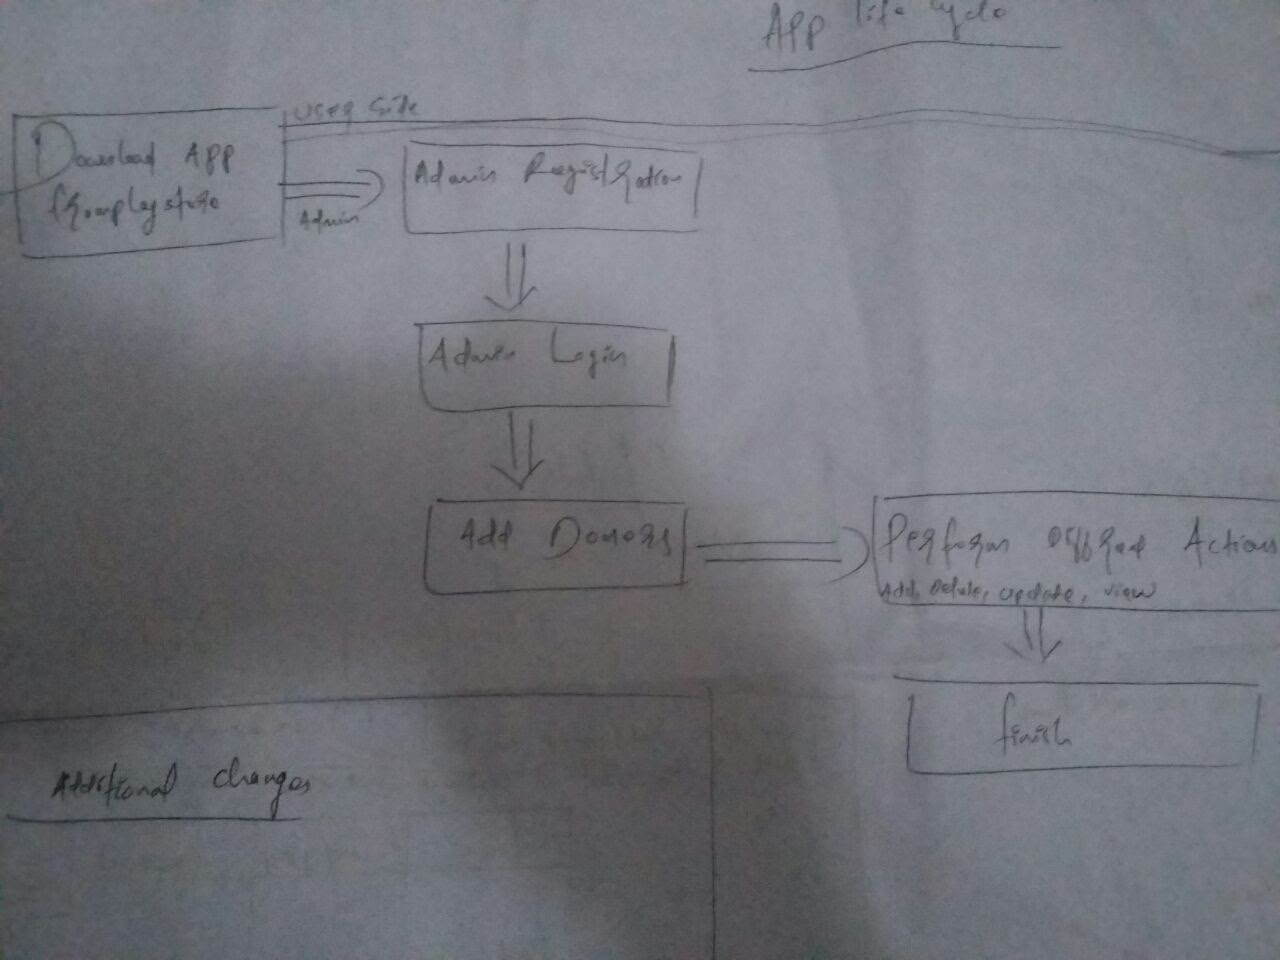 App life cycle
user side
Download App
from playstore
Admin
Admin Registration
Admin Login
Add Donors
Perform Different Actions
Add, Delete, update, view
finish
Additional changes